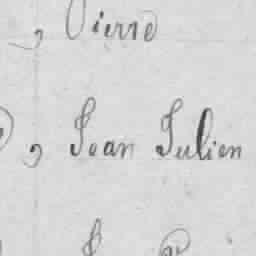 , Pierre
, Jean Julien